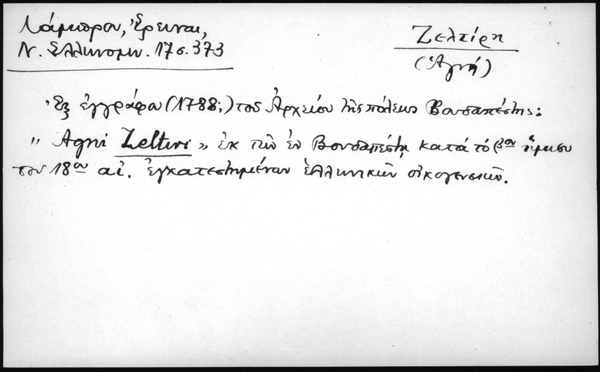 Λάμπρου, Έρευναι,
Ν. Ἑλληνομν. 17 σ. 373
Ζελτίρη
(Ἁγνή)
Ἐξ ἐγγράφου (1788;) τοῦ Ἀρχείου τῆς πόλεως Βουδαπέστης:
" Agni Zeltiri " ἐκ τῶν ἐν Βουδαπέστῃ κατά τό βον ἥμισυ
τοῦ 18ου αἰ. ἐγκατεστημένων ἑλληνικῶν οἰκογενειῶν.